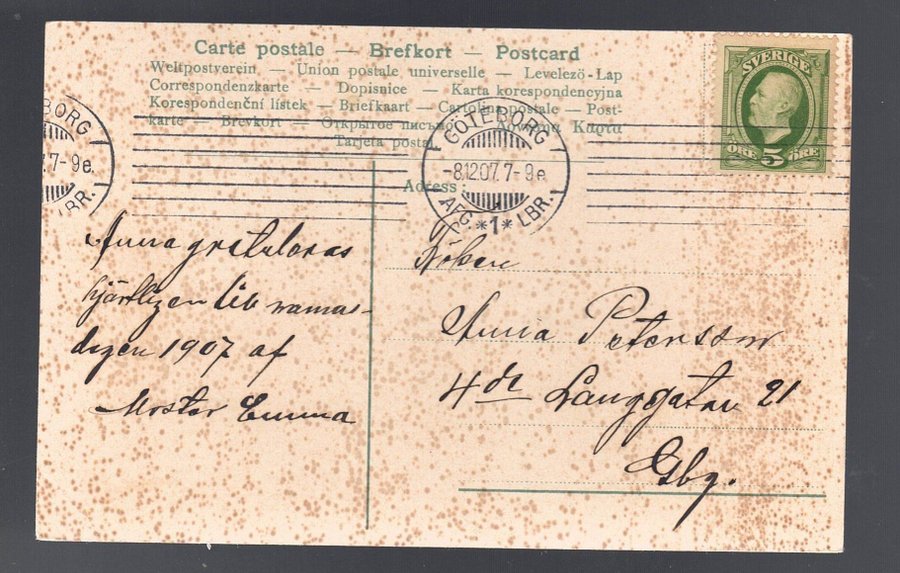 Carte postale — Brefkort — Postcard
Weltpostverein — Union postale universelle — Levelező-Lap
Correspondenzkarte — Dopisnice — Karta korespondencyjna
Korespondenční lístek — Briefkaart — Cartolina postale — Post-
karte — Brevkort — Открытое письмо — Κάρτα
Tarjeta postal
SVERIGE
ÖRE 5 ÖRE
BORG
7.7-9e.
LBR.
GÖTEBORG
-8.12.07. 7-9e.
AFG. *1* LBR.
Adress:
Anna gratuleras
hjärtligen på namns-
dagen 1907 af
Moster Emma
Fröken
Anna Petersson
4de Långgatan 21
Gbg.